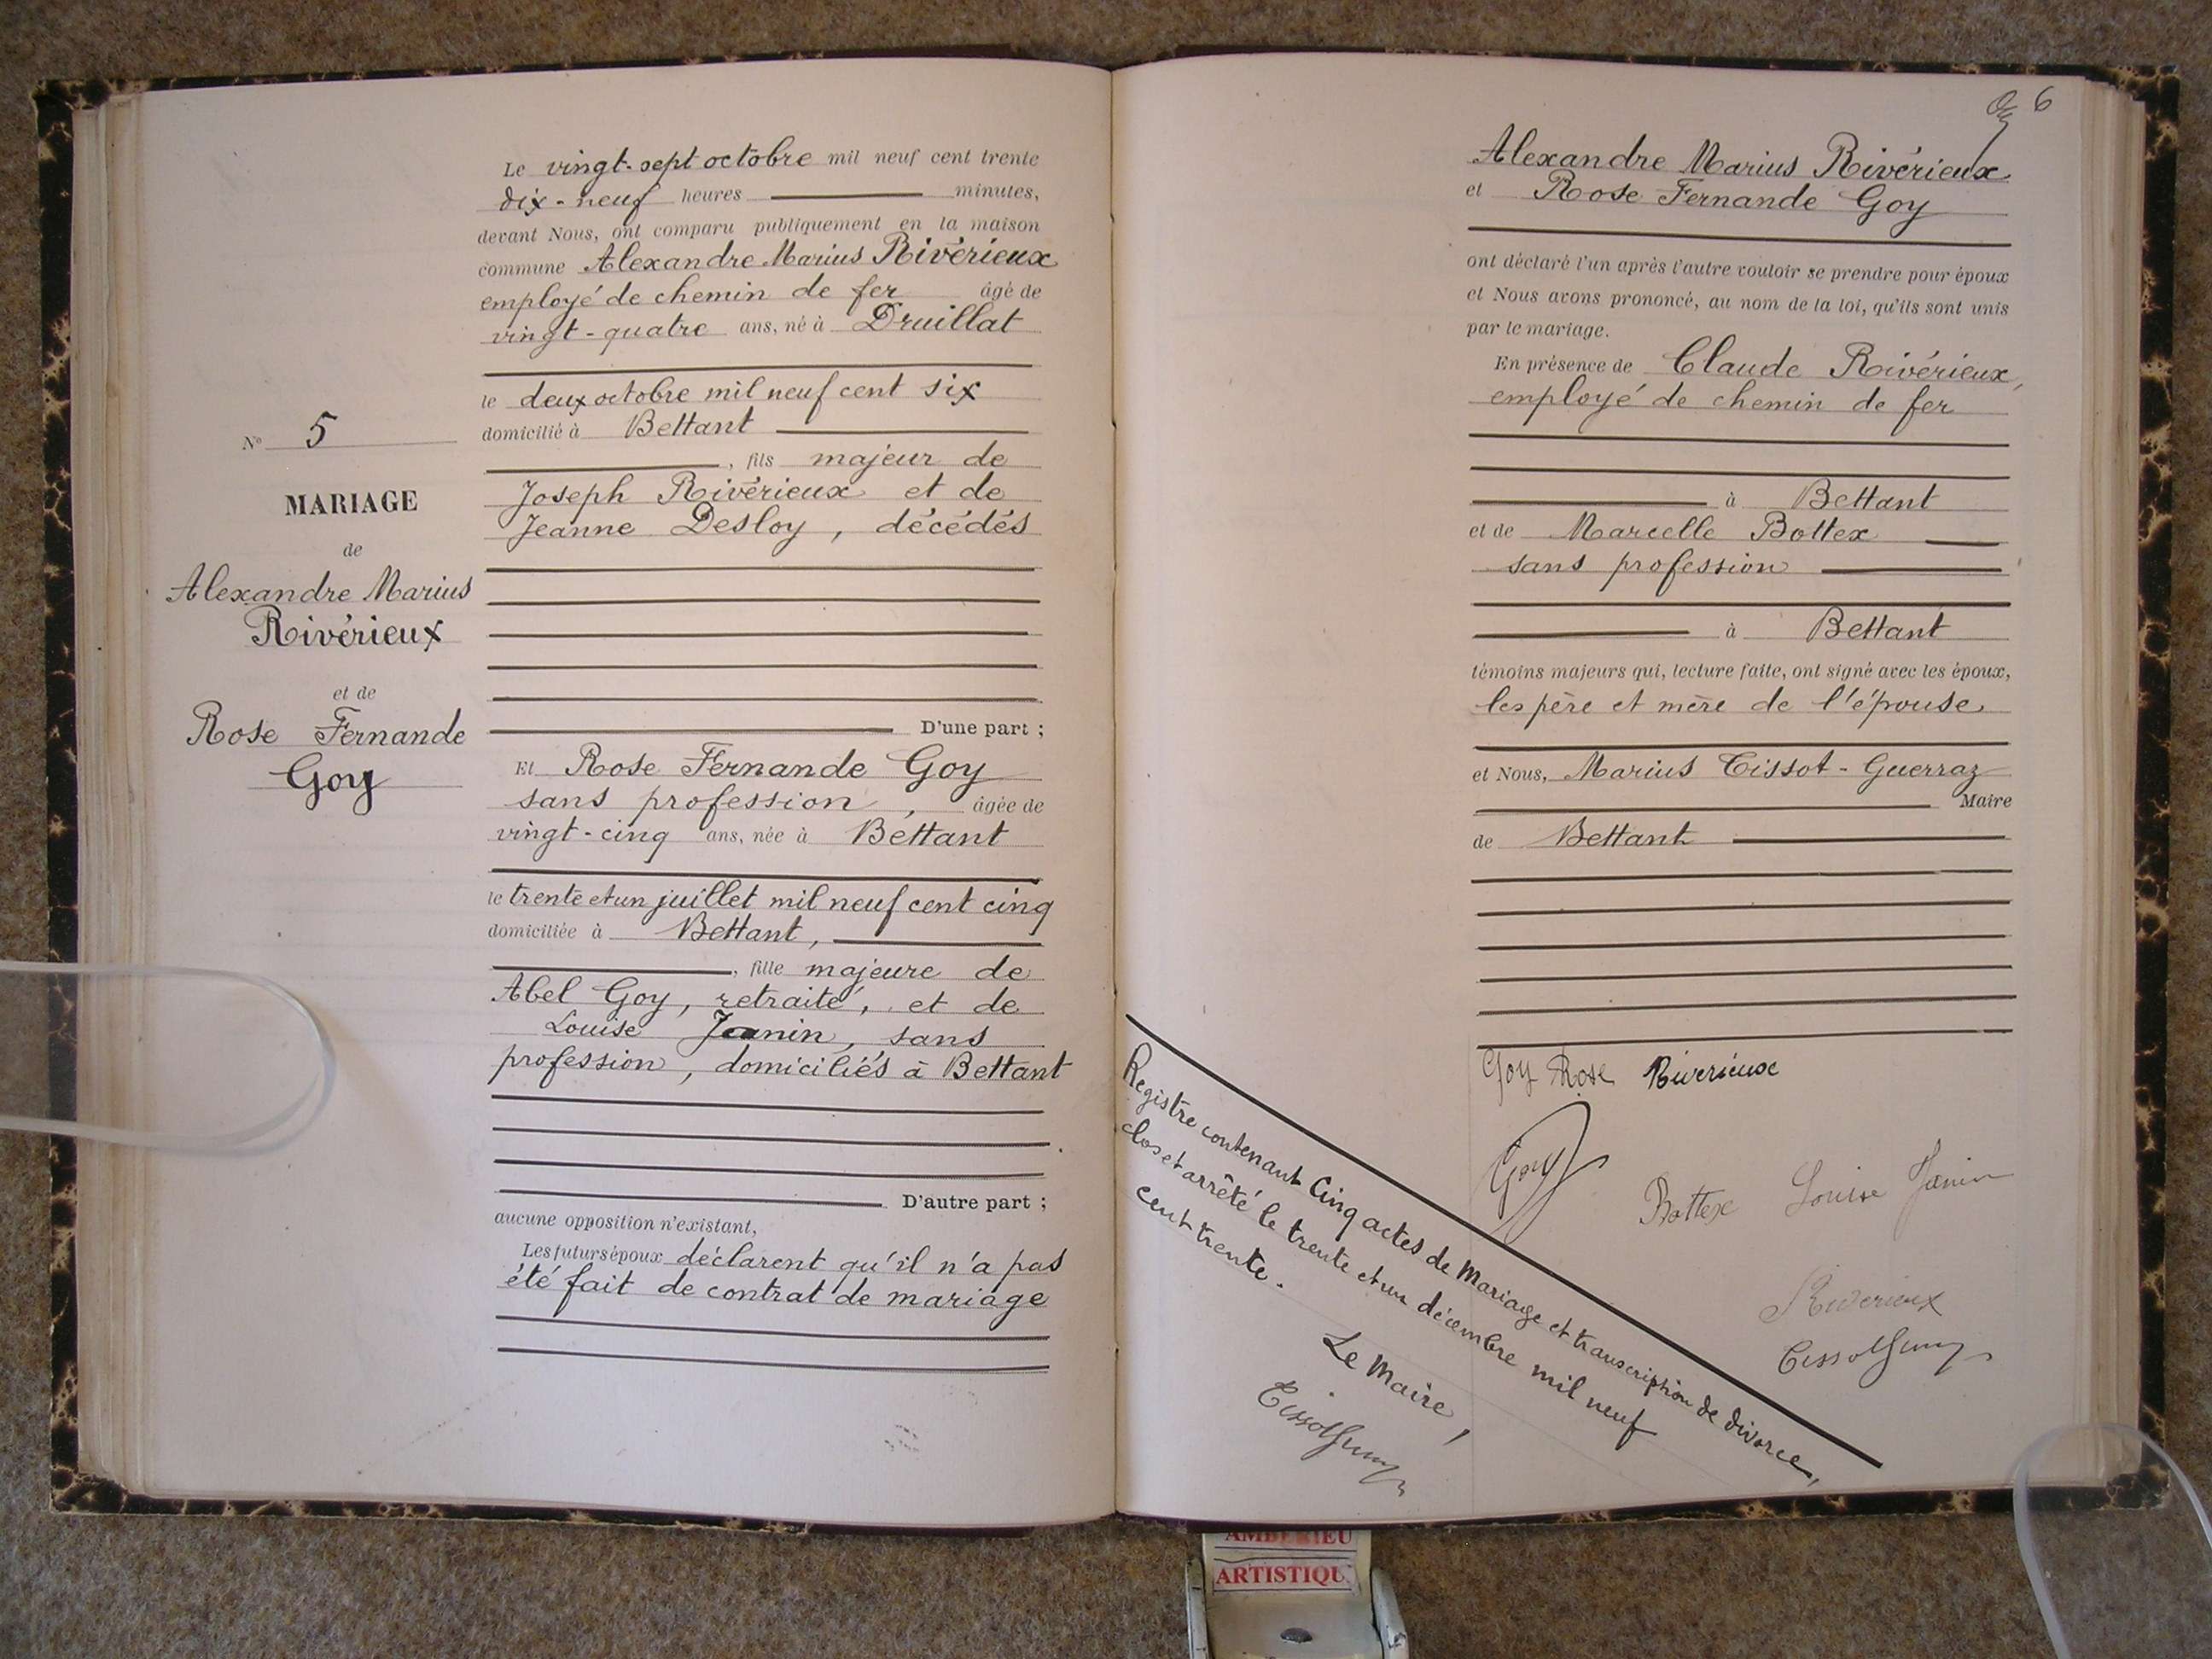 Le vingt-sept octobre mil neuf cent trente
dix-neuf heures minutes,
devant Nous, ont comparu publiquement en la maison
commune Alexandre Marius Rivérieux
employé de chemin de fer âgé de
vingt-quatre ans, né à Druillat
le deux octobre mil neuf cent six
domicilié à Bettant
, fils majeur de
Joseph Rivérieux et de
Jeanne Desloy, décédés
D'une part ;
Et Rose Fernande Goy
sans profession, âgée de
vingt-cinq ans, née à Bettant
le trente et un juillet mil neuf cent cinq
domiciliée à Bettant,
, fille majeure de
Abel Goy, retraité, et de
Louise Janin, sans
profession, domiciliés à Bettant
D'autre part ;
aucune opposition n'existant,
Les futurs époux déclarent qu'il n'a pas
été fait de contrat de mariage
N° 5
MARIAGE
de
Alexandre Marius
Rivérieux
et de
Rose Fernande
Goy
6
Alexandre Marius Rivérieux
et Rose Fernande Goy
ont déclaré l'un après l'autre vouloir se prendre pour époux
et Nous avons prononcé, au nom de la loi, qu'ils sont unis
par le mariage.
En présence de Claude Rivérieux,
employé de chemin de fer
à Bettant
et de Marcelle Bottex
sans profession
à Bettant
témoins majeurs qui, lecture faite, ont signé avec les époux,
les père et mère de l'épouse
et Nous, Marius Tissot-Guerraz
Maire
de Bettant
Goy Rose Rivérieux
Goy
Bottex Louise Janin
Rivérieux
Registre contenant Cinq actes de Mariage et transcription de divorce,
clos et arrêté le trente et un décembre mil neuf
cent trente.
Le Maire,
AMBERIEU
ARTISTIQU